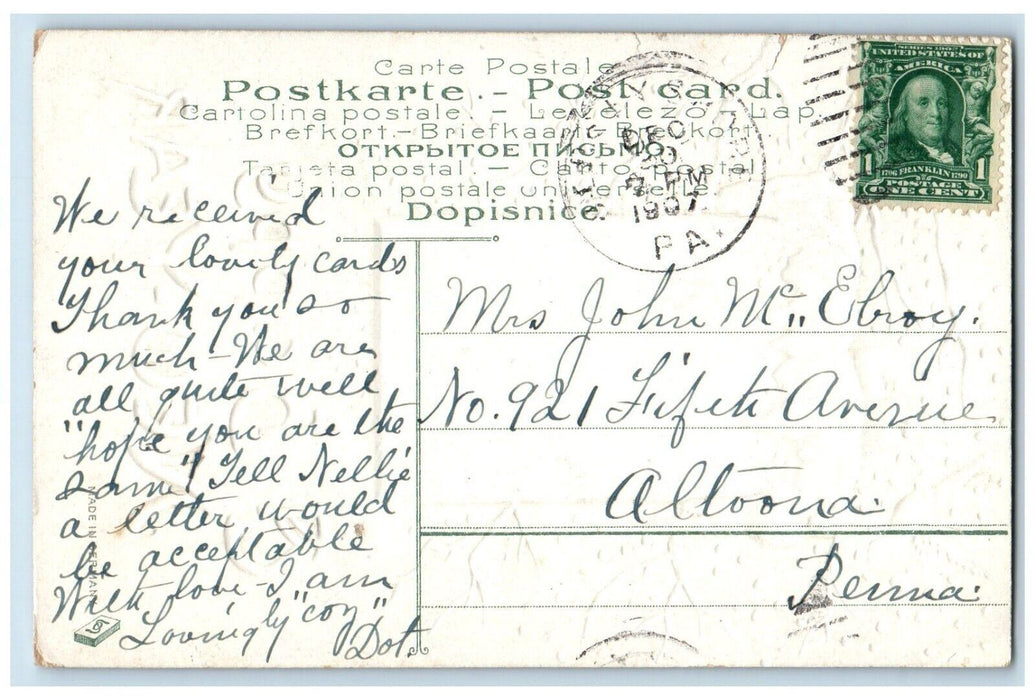 Carte Postale
Postkarte. - Post card.
Cartolina postale. - Levelező-Lap.
Brefkort. - Briefkaart. - Brevkort.
ОТКРЫТОЕ ПИСЬМО.
Tarjeta postal. - Cartão postal.
Union postale universelle.
Dopisnice.
DEC
30
7 PM
1907
PA.
SERIES 1902
UNITED STATES OF
AMERICA
1 1
1706 FRANKLIN 1790
POSTAGE
ONE CENT
We received
your lovely cards
Thank you so
much - We are
all quite well
"hope you are the
same" Tell Nellie
a letter would
be acceptable
With love - I am
Lovingly "coz"
Dot.
MADE IN GERMANY
Mrs John Mc Elroy.
No. 921 Fifth Avenue
Altoona.
Penna.